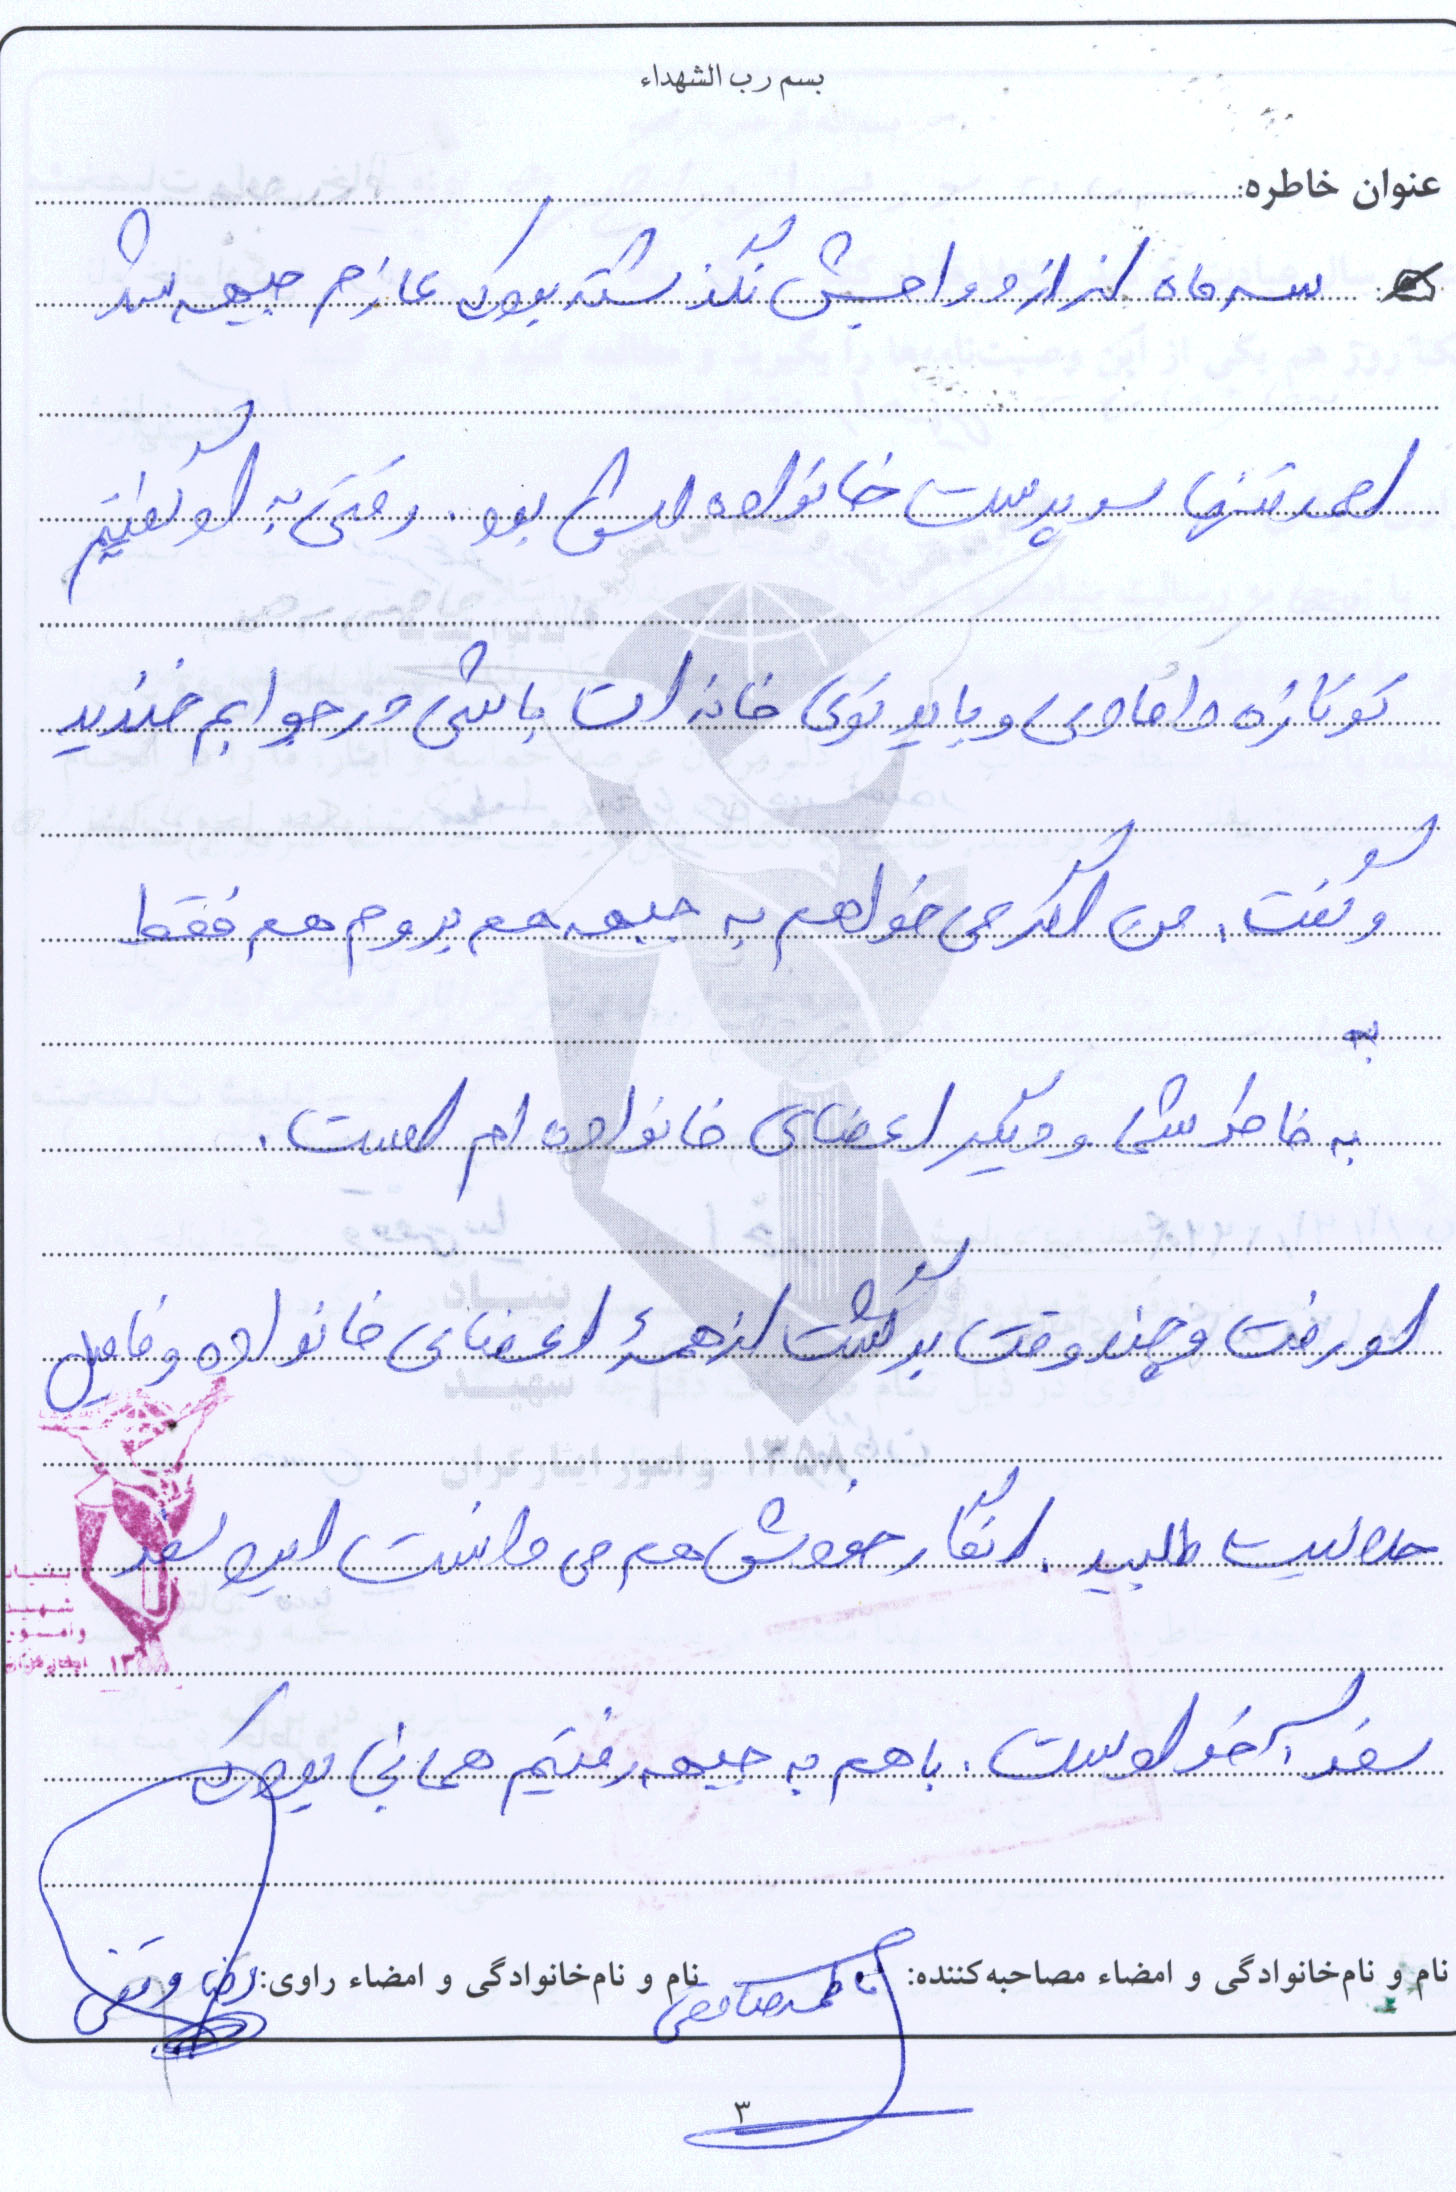 بسم رب الشهداء
عنوان خاطره:
سه ماه از ازدواجش نگذشته بود که عازم جبهه شد
احمد تنها سرپرست خانواده اش بود. وقتی به او گفتیم
تو تازه دامادی و باید توی خانه ات باشی در جوابم خندید
و گفت: من اگر می خواهم به جبهه هم بروم هم فقط
به
به خاطر شما و دیگر اعضای خانواده ام است.
او رفت و چند وقت برگشت از همهٔ اعضای خانواده و فامیل
حلالیت طلبید. انگار خودش هم می دانست این سفر
سفر آخر اوست. باهم به جبهه رفتیم همانجا بود که
نام و نام‌خانوادگی و امضاء مصاحبه‌کننده:
نام و نام‌خانوادگی و امضاء راوی: رضا
بنیاد
شهید
و امور
ایثارگران ۱۳۵۸
۳